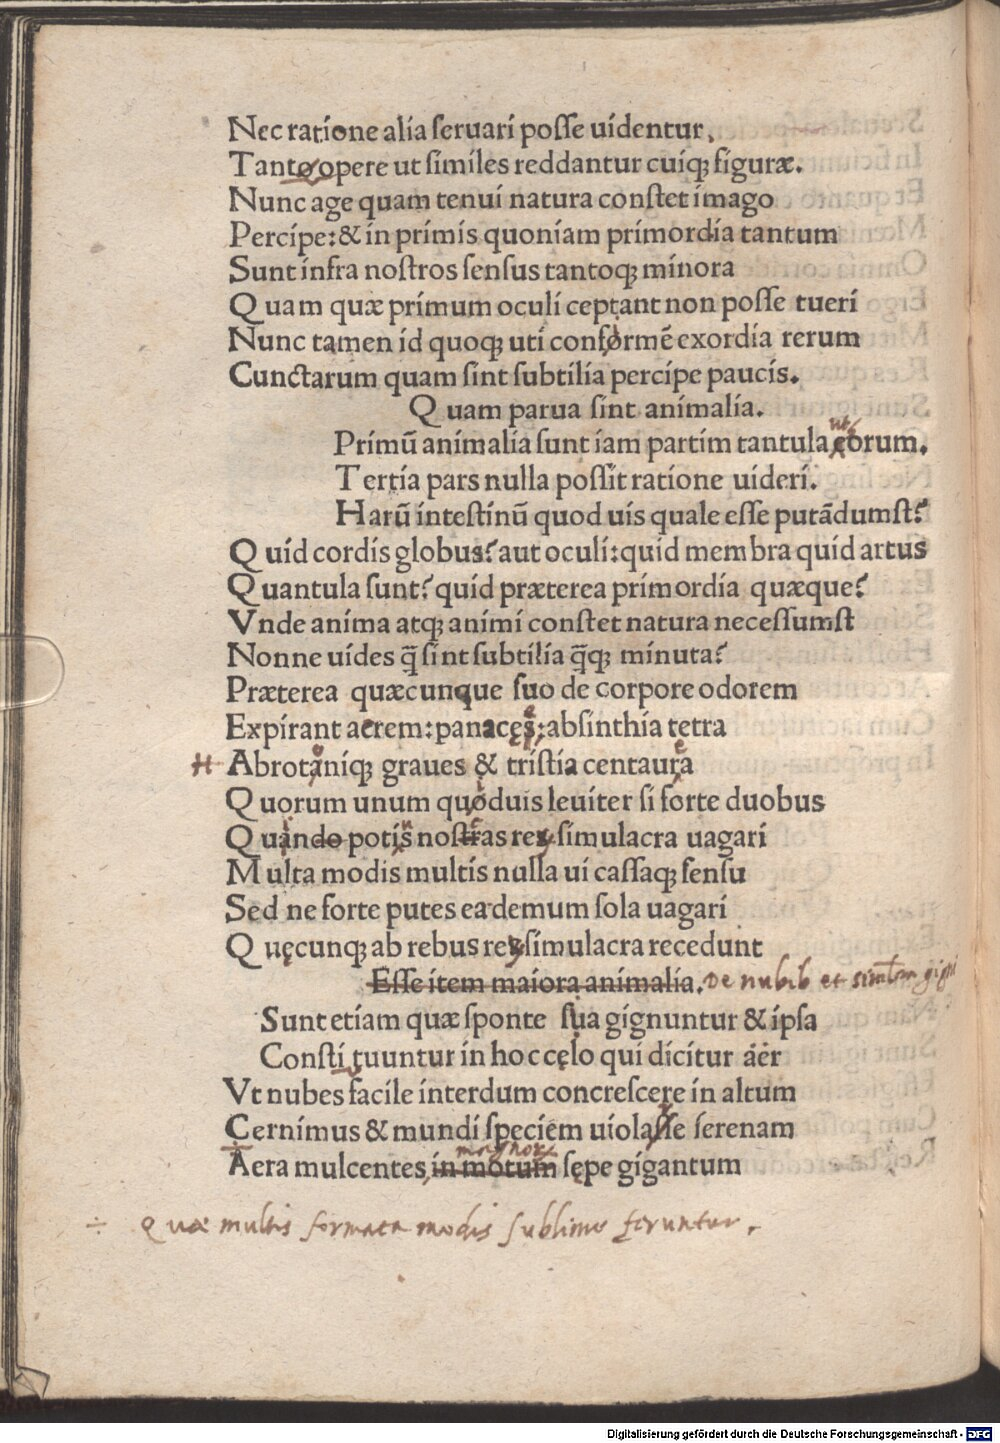 Nec ratione alia seruari posse uidentur.
Tanto opere ut similes reddantur cuiqꝫ figuræ.
Nunc age quam tenui natura constet imago
Percipe: & in primis quoniam primordia tantum
Sunt infra nostros sensus tantoqꝫ minora
Quam quæ primum oculi ceptant non posse tueri
Nunc tamen id quoqꝫ uti conformē exordia rerum
Cunctarum quam sint subtilia percipe paucis.
Quam parua sint animalia.
ut
Primū animalia sunt iam partim tantula eorum.
Tertia pars nulla possit ratione uideri.
Harū intestinū quod uis quale esse putādumst?
Quid cordis globus? aut oculi: quid membra quid artus
Quantula sunt? quid præterea primordia quæque?
Vnde anima atqꝫ animi constet natura necessumst
Nonne uides q̄ sint subtilia q̄qꝫ minuta?
Præterea quæcunque suo de corpore odorem
Expirant aerem: panacęs: absinthia tetra
Abrotaniqꝫ graues & tristia centaura
Quorum unum quoduis leuiter si forte duobus
Quando potis nostras reꝝ simulacra uagari
Multa modis multis nulla ui cassaqꝫ sensu
Sed ne forte putes ea demum sola uagari
Quęcunqꝫ ab rebus reꝝ simulacra recedunt
Esse item maiora animalia. De nubib et
Sunt etiam quæ sponte sua gignuntur & ipsa
Consti tuuntur in hoc cęlo qui dicitur aër
Vt nubes facile interdum concrescere in altum
Cernimus & mundi speciem uiolasse serenam
Aera mulcentes in motum sępe gigantum
÷ Quæ multis formata modis sublime feruntur.
Digitalisierung gefördert durch die Deutsche Forschungsgemeinschaft - DFG